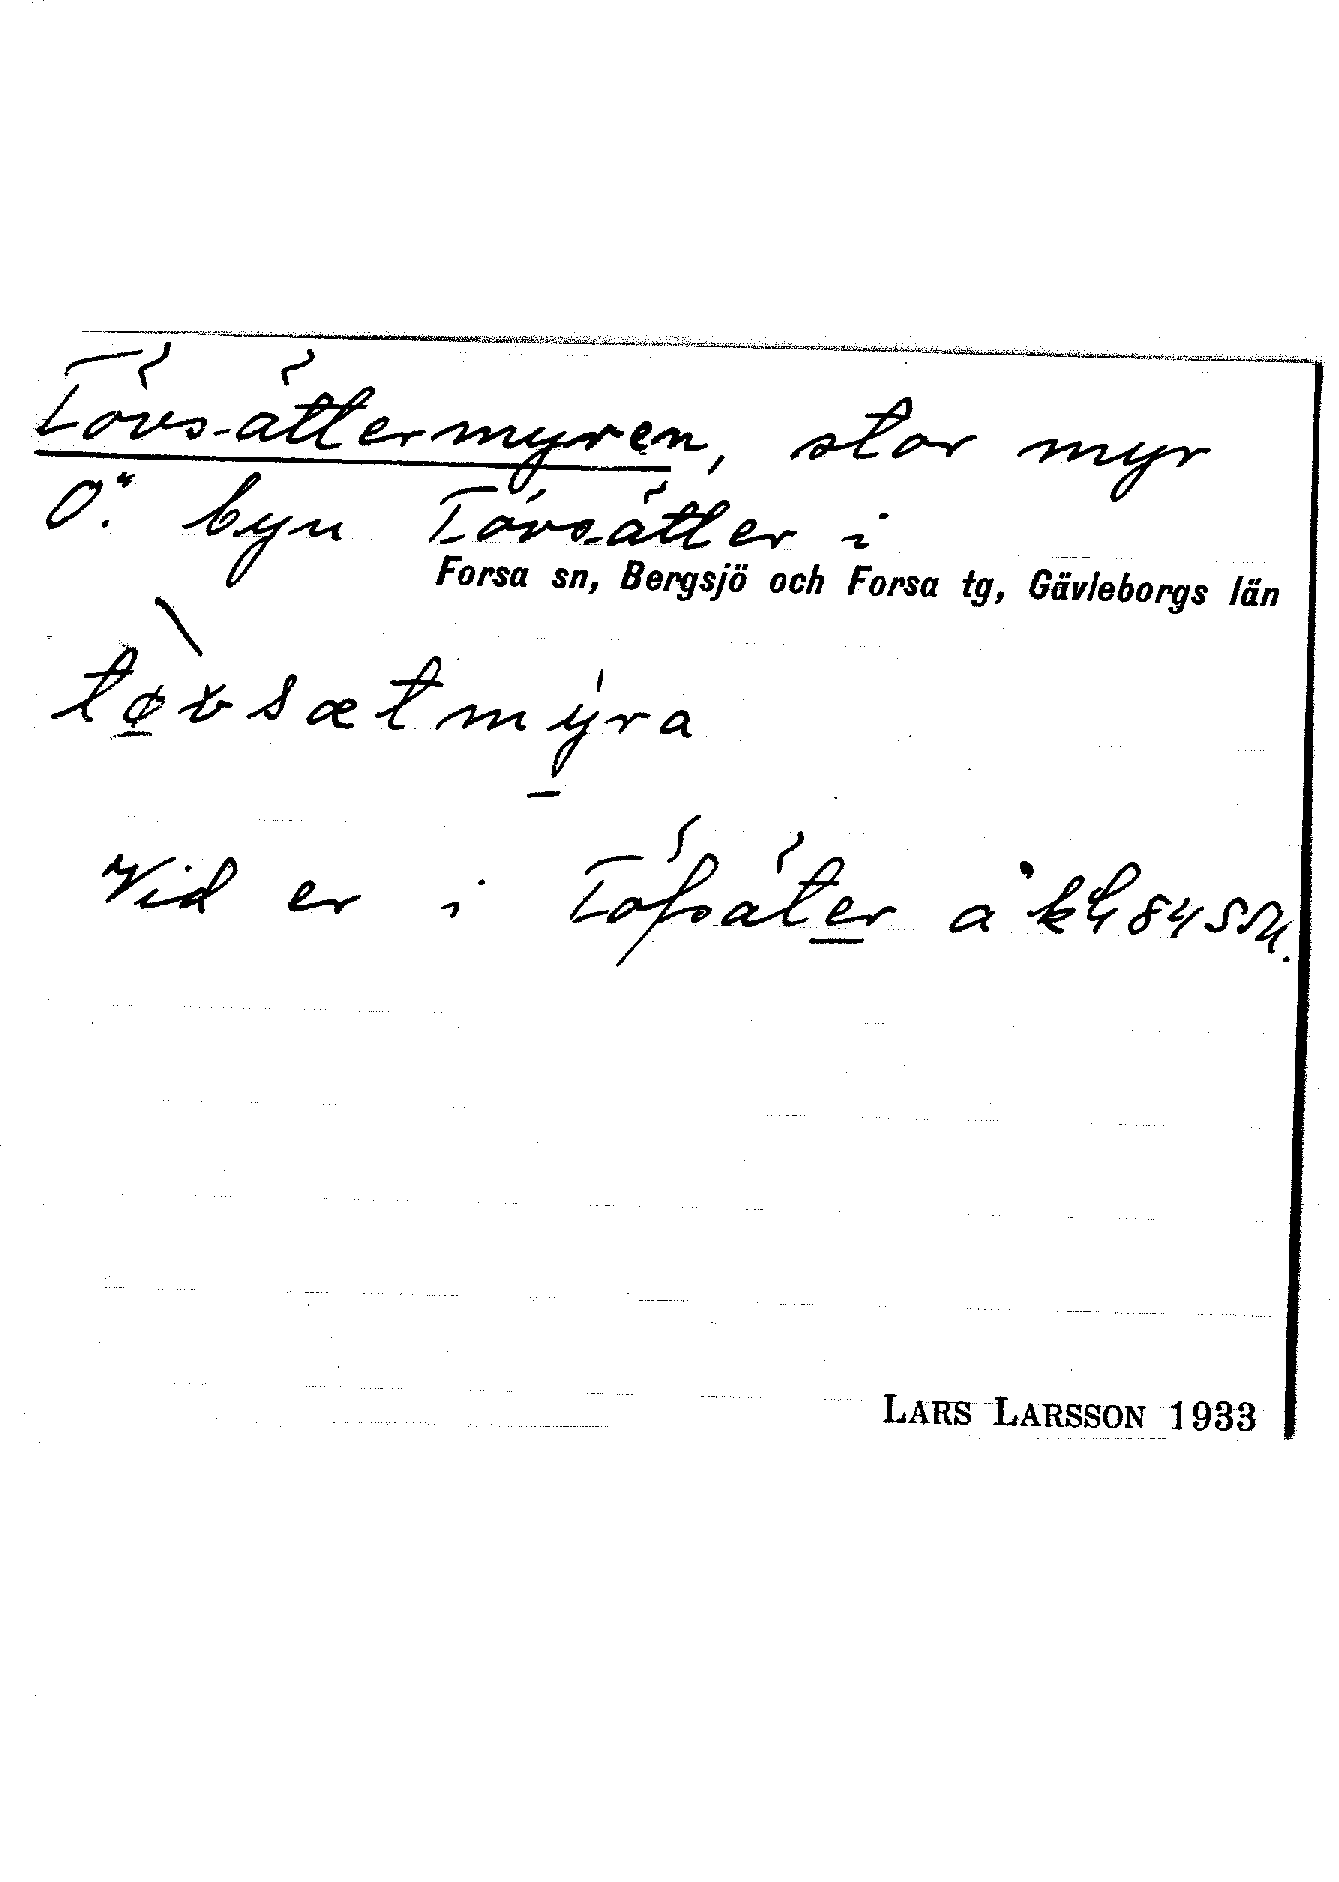 Tövsättermyren, stor myr
Ö. byn Tövsätter i
Forsa sn, Bergsjö och Forsa tg, Gävleborgs län
tø̱vsætmy̱ra
Vid er i Töfsäter å
LARS LARSSON 1933